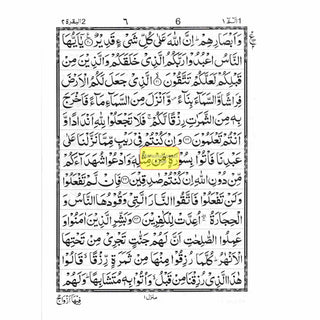 2 البقرة ٢ ٦ 6 الٓمّٓ ١ 1
وَاَبْصَارِهِمْ ؕ اِنَّ اللّٰهَ عَلٰى كُلِّ شَىْءٍ قَدِيْرٌ ۝ يٰۤاَيُّهَا
النَّاسُ اعْبُدُوْا رَبَّكُمُ الَّذِىْ خَلَقَكُمْ وَالَّذِيْنَ مِنْ
قَبْلِكُمْ لَعَلَّكُمْ تَتَّقُوْنَ ۝ الَّذِىْ جَعَلَ لَكُمُ الْاَرْضَ
فِرَاشًا وَّالسَّمَآءَ بِنَآءً ۪ وَّاَنْزَلَ مِنَ السَّمَآءِ مَآءً فَاَخْرَجَ
بِهٖ مِنَ الثَّمَرٰتِ رِزْقًا لَّكُمْ ۚ فَلَا تَجْعَلُوْا لِلّٰهِ اَنْدَادًا وَّ
اَنْتُمْ تَعْلَمُوْنَ ۝ وَاِنْ كُنْتُمْ فِىْ رَيْبٍ مِّمَّا نَزَّلْنَا عَلٰى
عَبْدِنَا فَاْتُوْا بِسُوْرَةٍ مِّنْ مِّثْلِهٖ ۪ وَادْعُوْا شُهَدَآءَكُمْ
مِّنْ دُوْنِ اللّٰهِ اِنْ كُنْتُمْ صٰدِقِيْنَ ۝ فَاِنْ لَّمْ تَفْعَلُوْا
وَلَنْ تَفْعَلُوْا فَاتَّقُوا النَّارَ الَّتِىْ وَقُوْدُهَا النَّاسُ وَ
الْحِجَارَةُ ۖ اُعِدَّتْ لِلْكٰفِرِيْنَ ۝ وَبَشِّرِ الَّذِيْنَ اٰمَنُوْا وَ
عَمِلُوا الصّٰلِحٰتِ اَنَّ لَهُمْ جَنّٰتٍ تَجْرِىْ مِنْ تَحْتِهَا
الْاَنْهٰرُ ؕ كُلَّمَا رُزِقُوْا مِنْهَا مِنْ ثَمَرَةٍ رِّزْقًا ۙ قَالُوْا
هٰذَا الَّذِىْ رُزِقْنَا مِنْ قَبْلُ ۙ وَاُتُوْا بِهٖ مُتَشَابِهًا ؕ وَلَهُمْ
منزل ١ فِيْهَاۤ اَزْوَاجٌ